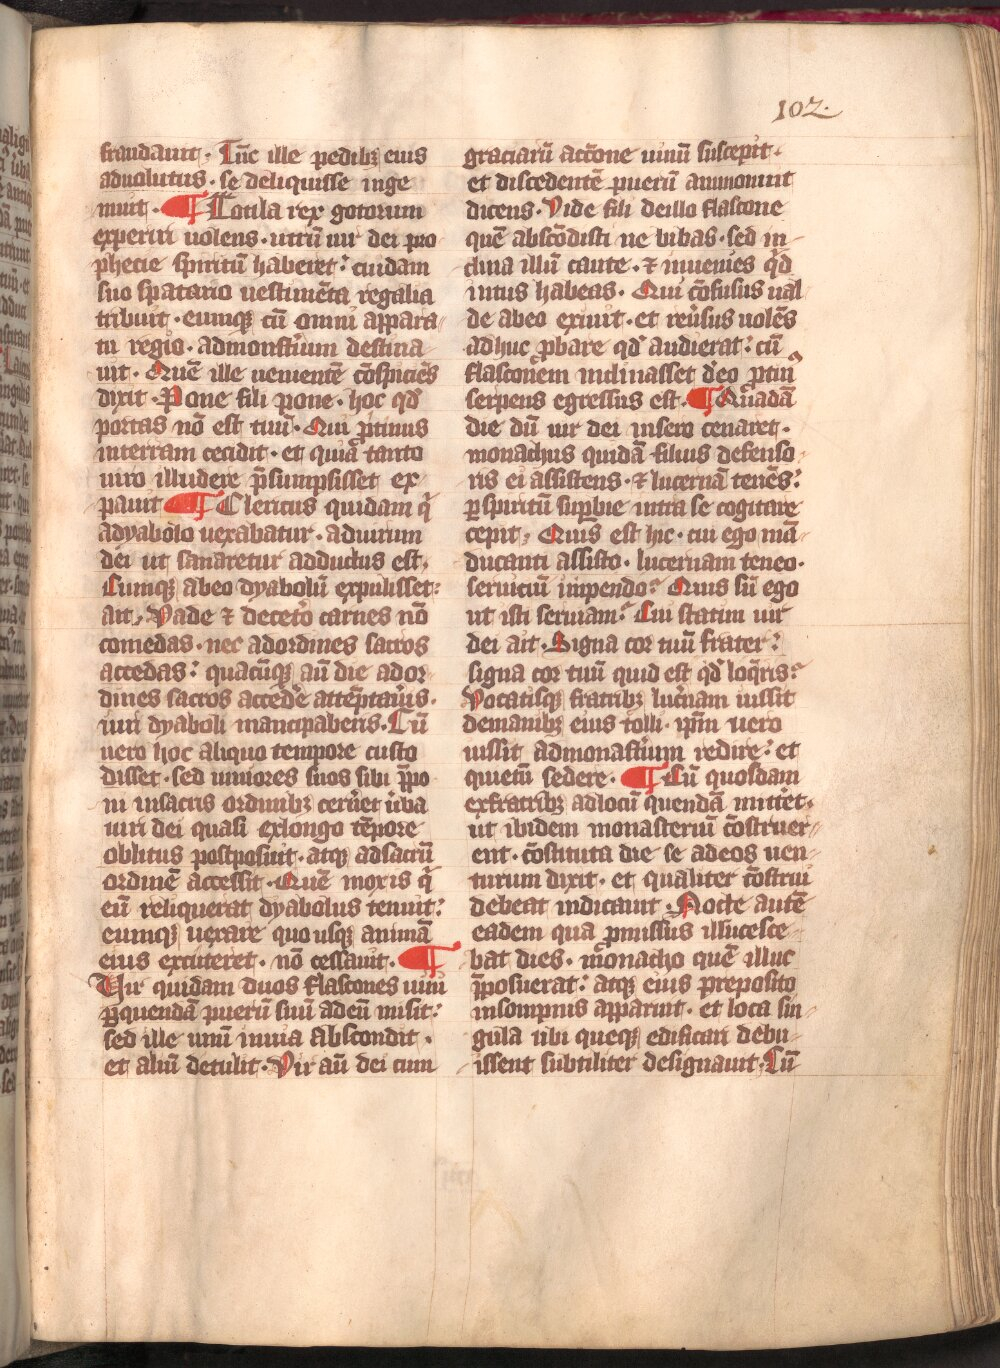 102.
fraudauit. Tūc ille pedibꝫ eius
aduolutus. se deliquisse inge
muit. ¶ Totila rex gotorum
experiri uolens. utrū uir dei pro
phecie spiritū haberet: cuidam
suo spatario uestimēta regalia
tribuit. eumqꝫ cū omni appara-
tu regio. admonst̓ium destina
uit. Quē ille uenientē cōspiciēs
dixit. Pone fili pone. hoc qd̓
portas nō est tuū. Qui ꝓtinus
interram cecidit. et quia tanto
uiro illudere p̄sumpsisset ex-
pauit ¶ Clericus quidam q̇
adyabolo uexabatur. aduirum
dei ut sanaretur adductus est.
Cumqꝫ abeo dyabolū expulisset:
ait. Vade ⁊ decet̓o carnes nō
comedas. nec adordines sacros
accedas: quacūqꝫ aū die ador-
dines sacros acced̓e attēptau̓is.
iuri dyaboli manciparberis. Cū
uero hoc aliquo tempore custo
disset. sed iuniores suos sibi p̄po
ni insacris ordinibꝫ cern̓et u̓ba
uiri dei quasi exlongo tēpore
oblitus postposuit. atqꝫ adsacrū
ordinē accessit. Quē moxis q̇
eū reliquerat dyabolus tenuit:
eumqꝫ uexare quo usqꝫ animā
eius excuteret. nō cessauit. ¶
Uir quidam duos flascones uini
ꝑquendā puerū suū adeū misit:
sed ille unū inuia abscondit.
et aliū detulit. Vir aū dei cum
graciarū actōne uinū suscepit.
et discedentē puerū ammonuit
dicens. Vide fili deillo flascone
quē abscōdisti ne bibas. sed in-
clina illū caute. ⁊ inuenies qd̓
intus habeas. Qui cōfusus ual-
de abeo exiuit. et reu̓sus uolēs
adhuc ꝓbare qd̓ audierat: cū
flasconem inclinasset deo ꝓtin̓
serpens egressus est. ¶ Quadā
die dū uir dei insero cenaret.
monachus quidā filius defenso-
ris ei assistens. ⁊ lucernā tenēs:
ꝑspiritū suꝑbie intra se cogitare
cepit. Quis est hic. cui ego mā-
ducanti assisto. lucernam teneo.
seruiciū inpendo? Quis sū ego
ut isti seruiam? Cui statim uir
dei ait. Signa cor tuū frater:
signa cor tuū quid est qd̓ loq̇ris?
Vocatisqꝫ fratribꝫ luc̓nam iussit
demanibꝫ eius tolli. ip̄m uero
iussit admonast̓ium redire: et
quietū sedere. ¶ Cū quosdam
exfratribꝫ adlocū quendā mitt̓et.
ut ibidem monasteriū cōstruer-
ent. cōstituta die se adeos uen-
turum dixit. et qualiter cōstrui
debeat indicauit. Nocte autē
eadem qua ꝓmissus illucesce-
bat dies. monacho quē illuc
p̄posuerat: atqꝫ eius preposito
insompnis apparuit. et loca sin-
gula ubi queqꝫ edificari debu-
issent subtiliter designauit. Cū